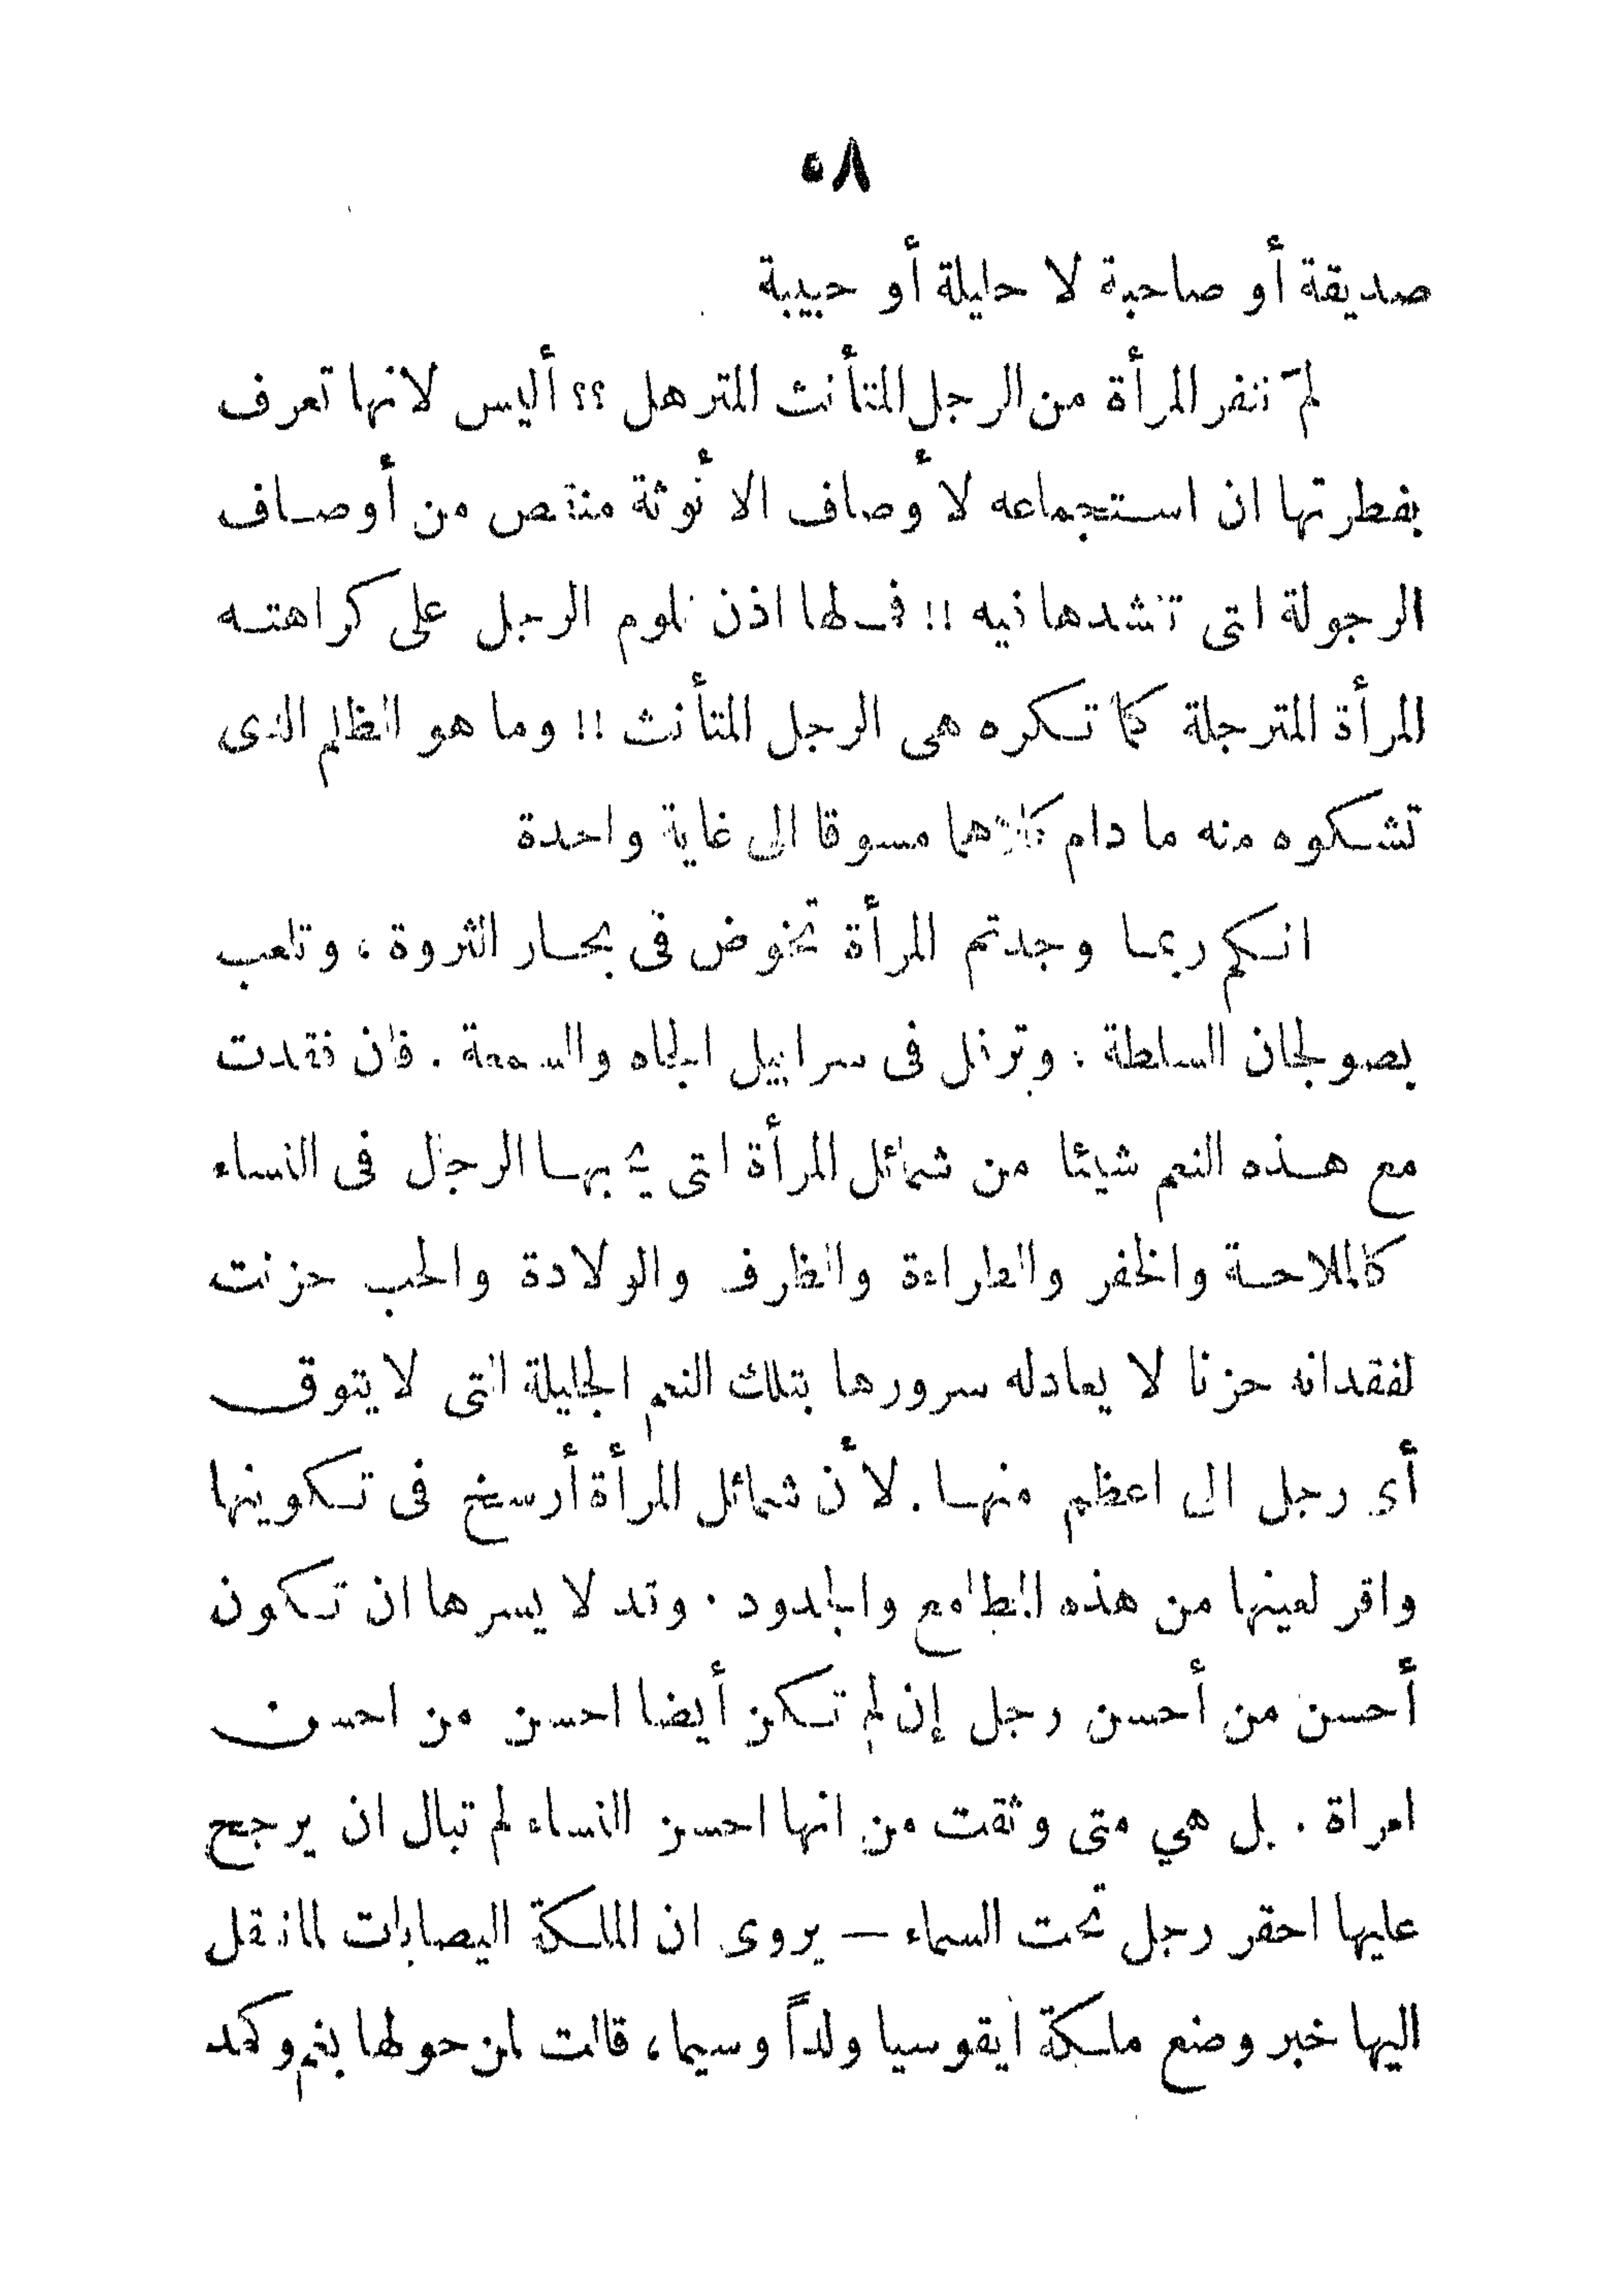 ٥٨
صديقة أو صاحبة لا حليلة أو حبيبة
لمَ تنفر المرأة من الرجل المتأنث المترهل ؟؟ أليس لانها تعرف
بفطرتها ان استجماعه لأوصاف الأنوثة منتقص من أوصاف
الرجولة التى تنشدها فيه !! فما لها اذن تلوم الرجل على كراهته
المرأة المترجلة كما تكره هى الرجل المتأنث !! وما هو الظلم الذى
تشكوه منه ما دام كلاهما مسوقا الى غاية واحدة
انكم ربما وجدتم المرأة تخوض فى بحار الثروة ، وتلعب
بصولجان السلطة : وترفل فى سرابيل الجاه والسمعة . فان فقدت
مع هذه النعم شيئا من شمائل المرأة التى بها الرجال فى النساء
كالملاحة والخفر والطراءة والظرف والولادة والحب حزنت
لفقدانه حزنا لا يعادله سرورها بتلك النعم الجليلة التى لا يتوق
أى رجل الى اعظم منها . لأن شمائل المرأة أرسخ فى تكوينها
واقر لعينها من هذه المطامع والجدود . وقد لا يسرها ان تكون
أحسن من أحسن رجل إن لم تكن أيضا احسن من احسن
امراة . بل هي متى وثقت من انها احسن النساء لم تبال ان يرجح
عليها احقر رجل تحت السماء — يروى ان الملكة اليصابات لما نقل
اليها خبر وضع ملكة ايقوسيا ولداً وسيما ، قالت لمن حولها بغم وكمد